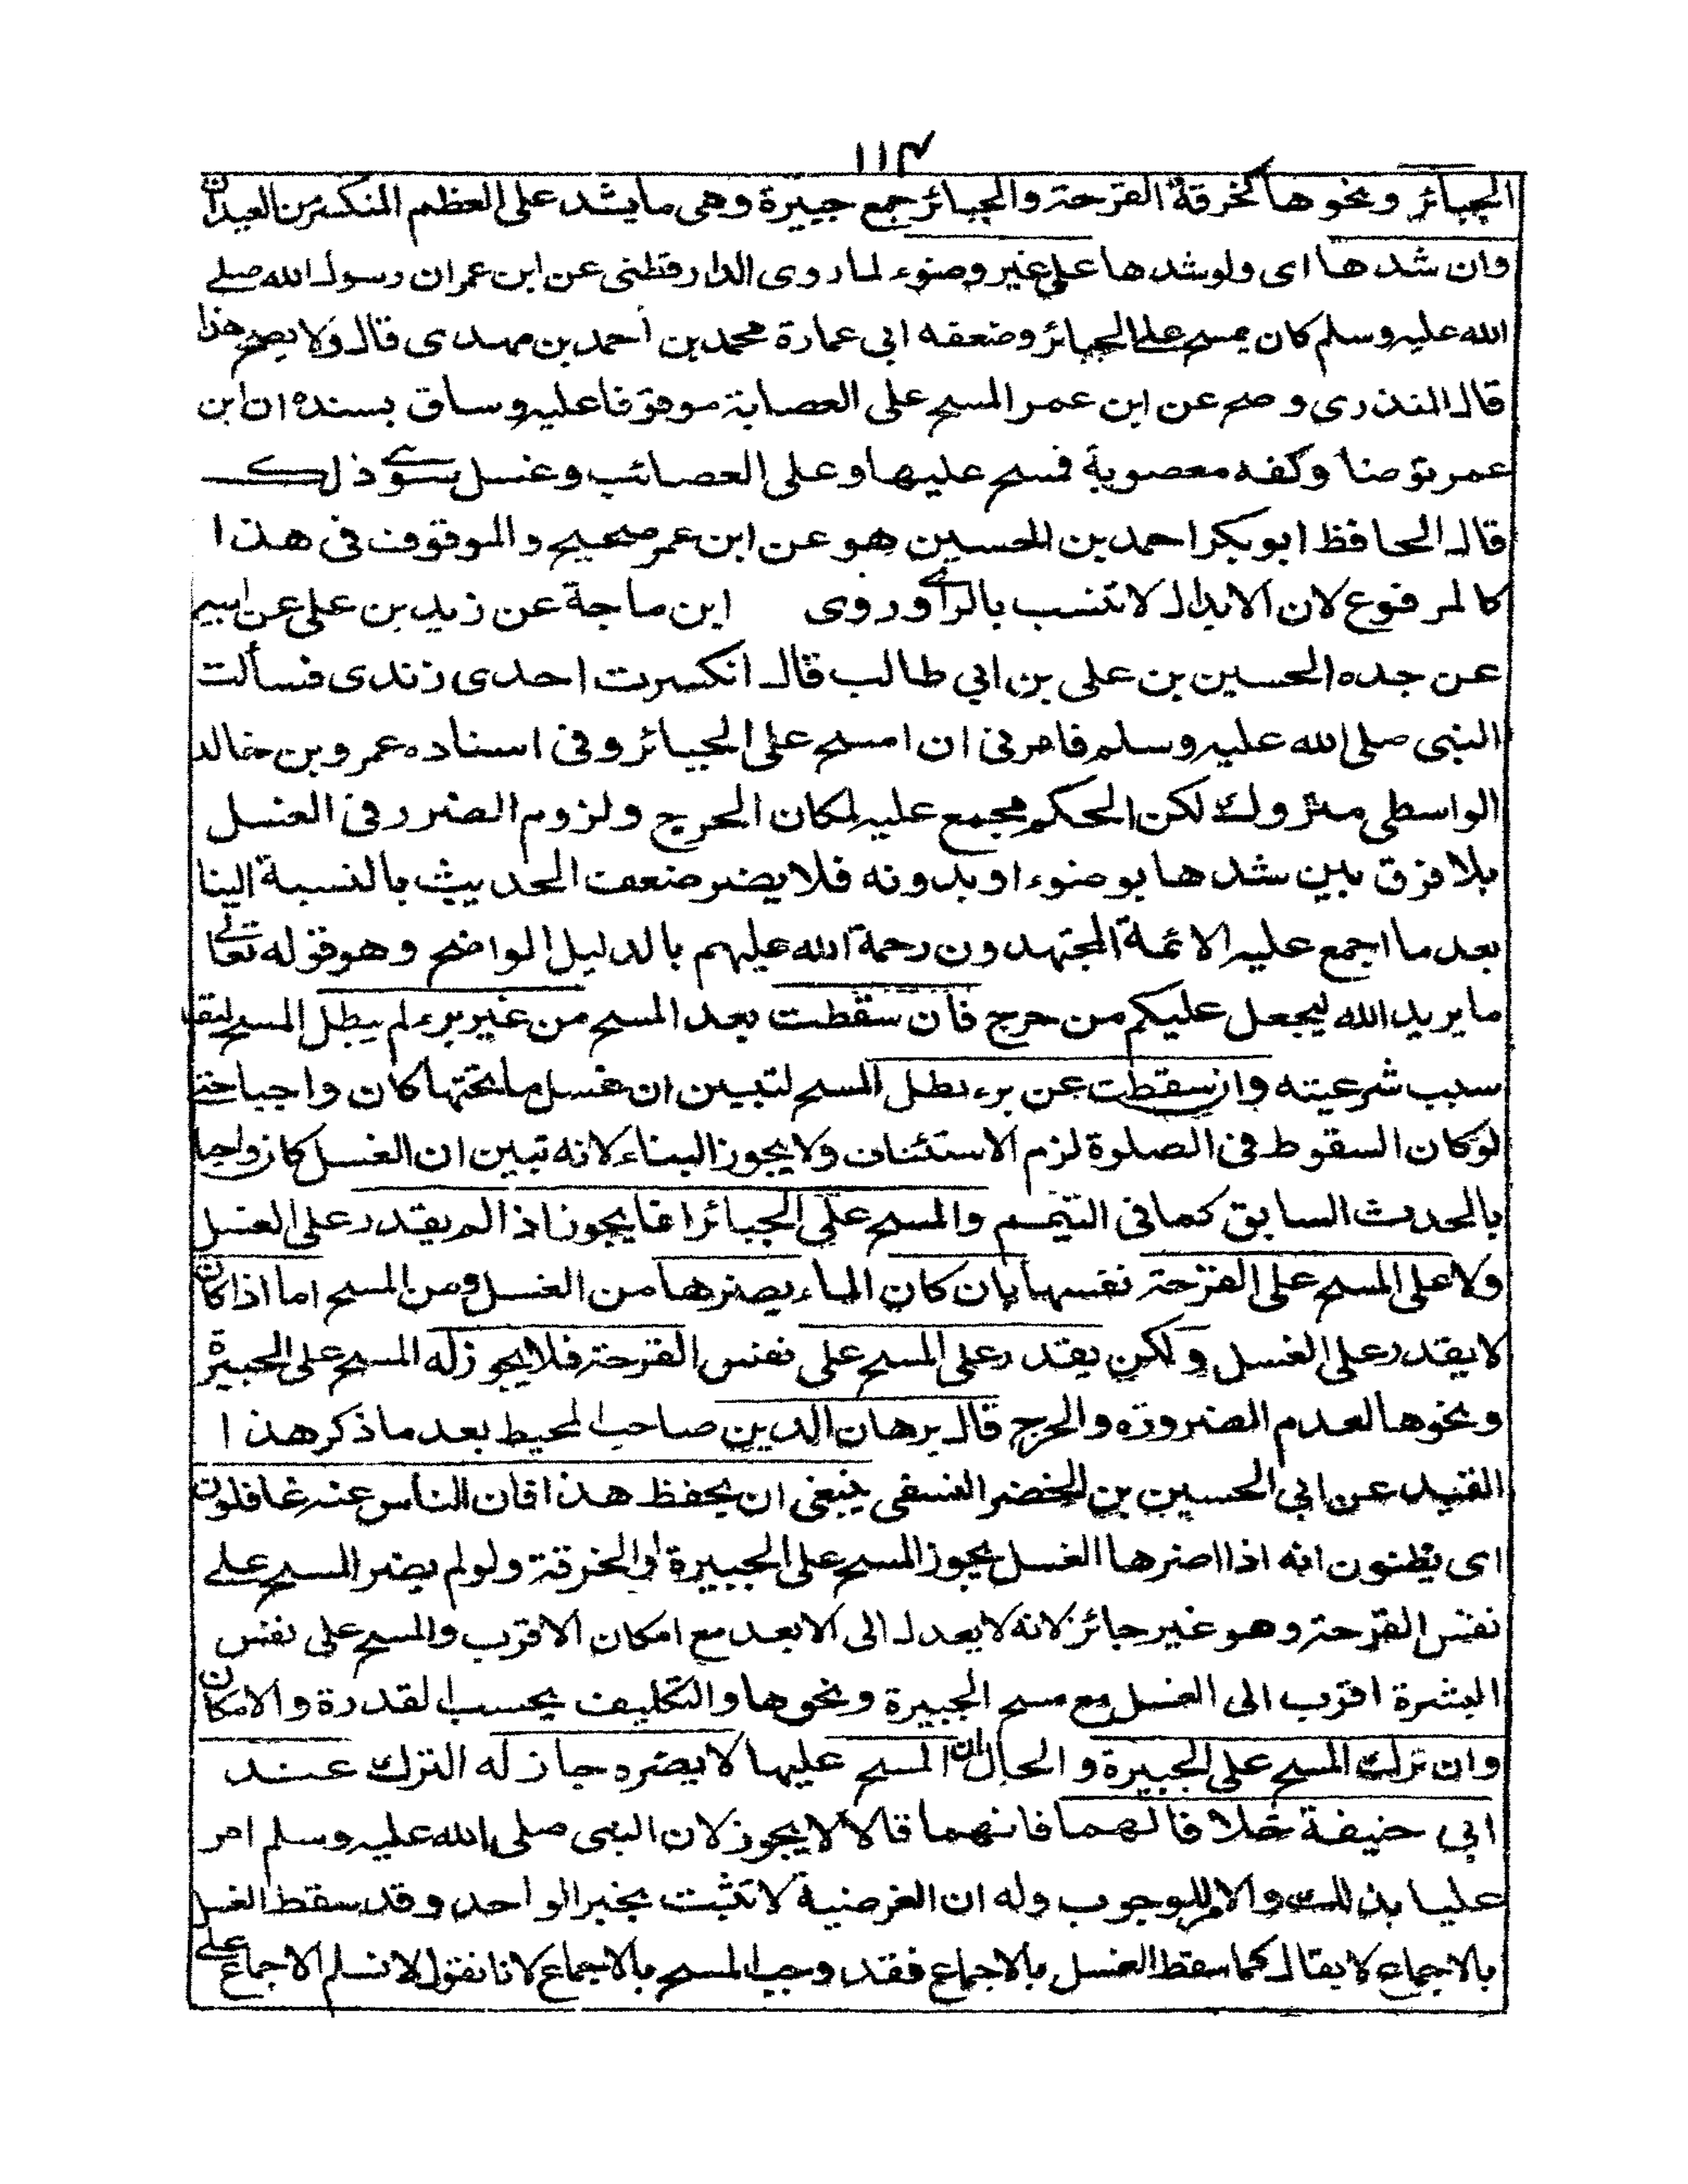 ١١٣
الجبائر ونحوها كخرقة القرحة والجبائر جمع جبيرة وهى ما يشد على العظم المنكسر من العيدان
وان شدها اى ولو شدها على غير وضوء لما روى الدارقطنى عن ابن عمر ان رسول الله صلے
الله عليه وسلم كان يمسح على الجبائر وضعفه ابى عمارة محمد بن أحمد بن مهدى قال ولا يصح هذا
قال المنذرى وصح عن ابن عمر المسح على العصابة موقوفا عليه وساق بسنده ان ابن
عمر توضأ وكفه معصوبة فمسح عليها وعلى العصائب وغسل سوى ذلك
قال الحافظ ابو بكر احمد بن الحسين هو عن ابن عمر صحيح والموقوف فى هذا
كالمرفوع لان الابدال لا تنسب بالراے وروى ابن ماجة عن زيد بن على عن ابيه
عن جده الحسين بن على بن ابي طالب قال انكسرت احدى زندى فسألت
النبى صلى الله عليه وسلم فامرنى ان امسح على الجبائر وفى اسناده عمرو بن خالد
الواسطى متروك لكن الحكم مجمع عليه لمكان الحرج ولزوم الضرر فى الغسل
بلا فرق بين شدها بوضوء او بدونه فلا يضر ضعف الحديث بالنسبة الينا
بعد ما اجمع عليه الائمة المجتهدون رحمة الله عليهم بالدليل الواضح وهو قوله تعالے
ما يريد الله ليجعل عليكم من حرج فان سقطت بعد المسح من غير برء لم يبطل المسح لبقاء
سبب شرعيته وان سقطت عن برء بطل المسح لتبين ان غسل ما تحتها كان واجبا حتے
لو كان السقوط فى الصلوة لزم الاستئناف ولا يجوز البناء لانه تبين ان الغسل كان واجبا
بالحدث السابق كما فى التيمم والمسح على الجبائر انما يجوز اذا لم يقدر على الغسل
ولا على المسح على القرحة نفسها بان كان الماء يضرها من الغسل ومن المسح اما اذا كان
لا يقدر على الغسل ولكن يقدر على المسح على نفس القرحة فلا يجوز له المسح على الجبيرة
ونحوها لعدم الضرورة والحرج قال برهان الدين صاحب المحيط بعد ما ذكر هذا
القيد عن ابي الحسين بن الخضر النسفى ينبغى ان يحفظ هذا فان الناس عنه غافلون
اى يظنون انه اذا اضرها الغسل يجوز المسح على الجبيرة او الخرقة ولو لم يضر المسح علے
نفس القرحة وهو غير جائز لانه لا يعدل الى الابعد مع امكان الاقرب والمسح على نفس
البشرة اقرب الى الغسل مع مسح الجبيرة ونحوها والتكليف بحسب القدرة والامكان
وان ترك المسح على الجبيرة والحال ان المسح عليها لا يضره جاز له الترك عند
ابي حنيفة خلافا لهما فانهما قالا لا يجوز لان النبى صلى الله عليه وسلم امر
عليا بذلك والامر للوجوب وله ان الفرضية لا تثبت بخبر الواحد وقد سقط الغسل
بالاجماع لا يقال كما سقط الغسل بالاجماع فقد وجب المسح بالاجماع لانا نقول لا نسلم الاجماع علے